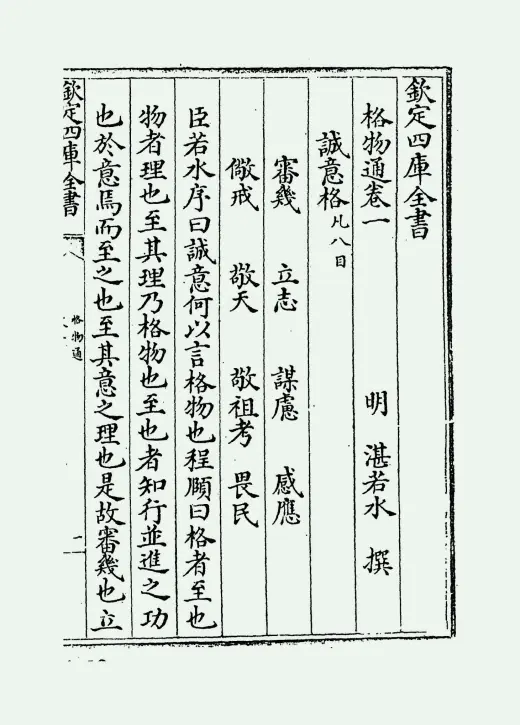 欽定四庫全書
格物通卷一
明 湛若水 撰
誠意格凡八目
審幾 立志 謀慮 感應
儆戒 敬天 敬祖考 畏民
臣若水序曰誠意何以言格物也程頤曰格者至也
物者理也至其理乃格物也至也者知行並進之功
也於意焉而至之也至其意之理也是故審幾也立
欽定四庫全書
格物通